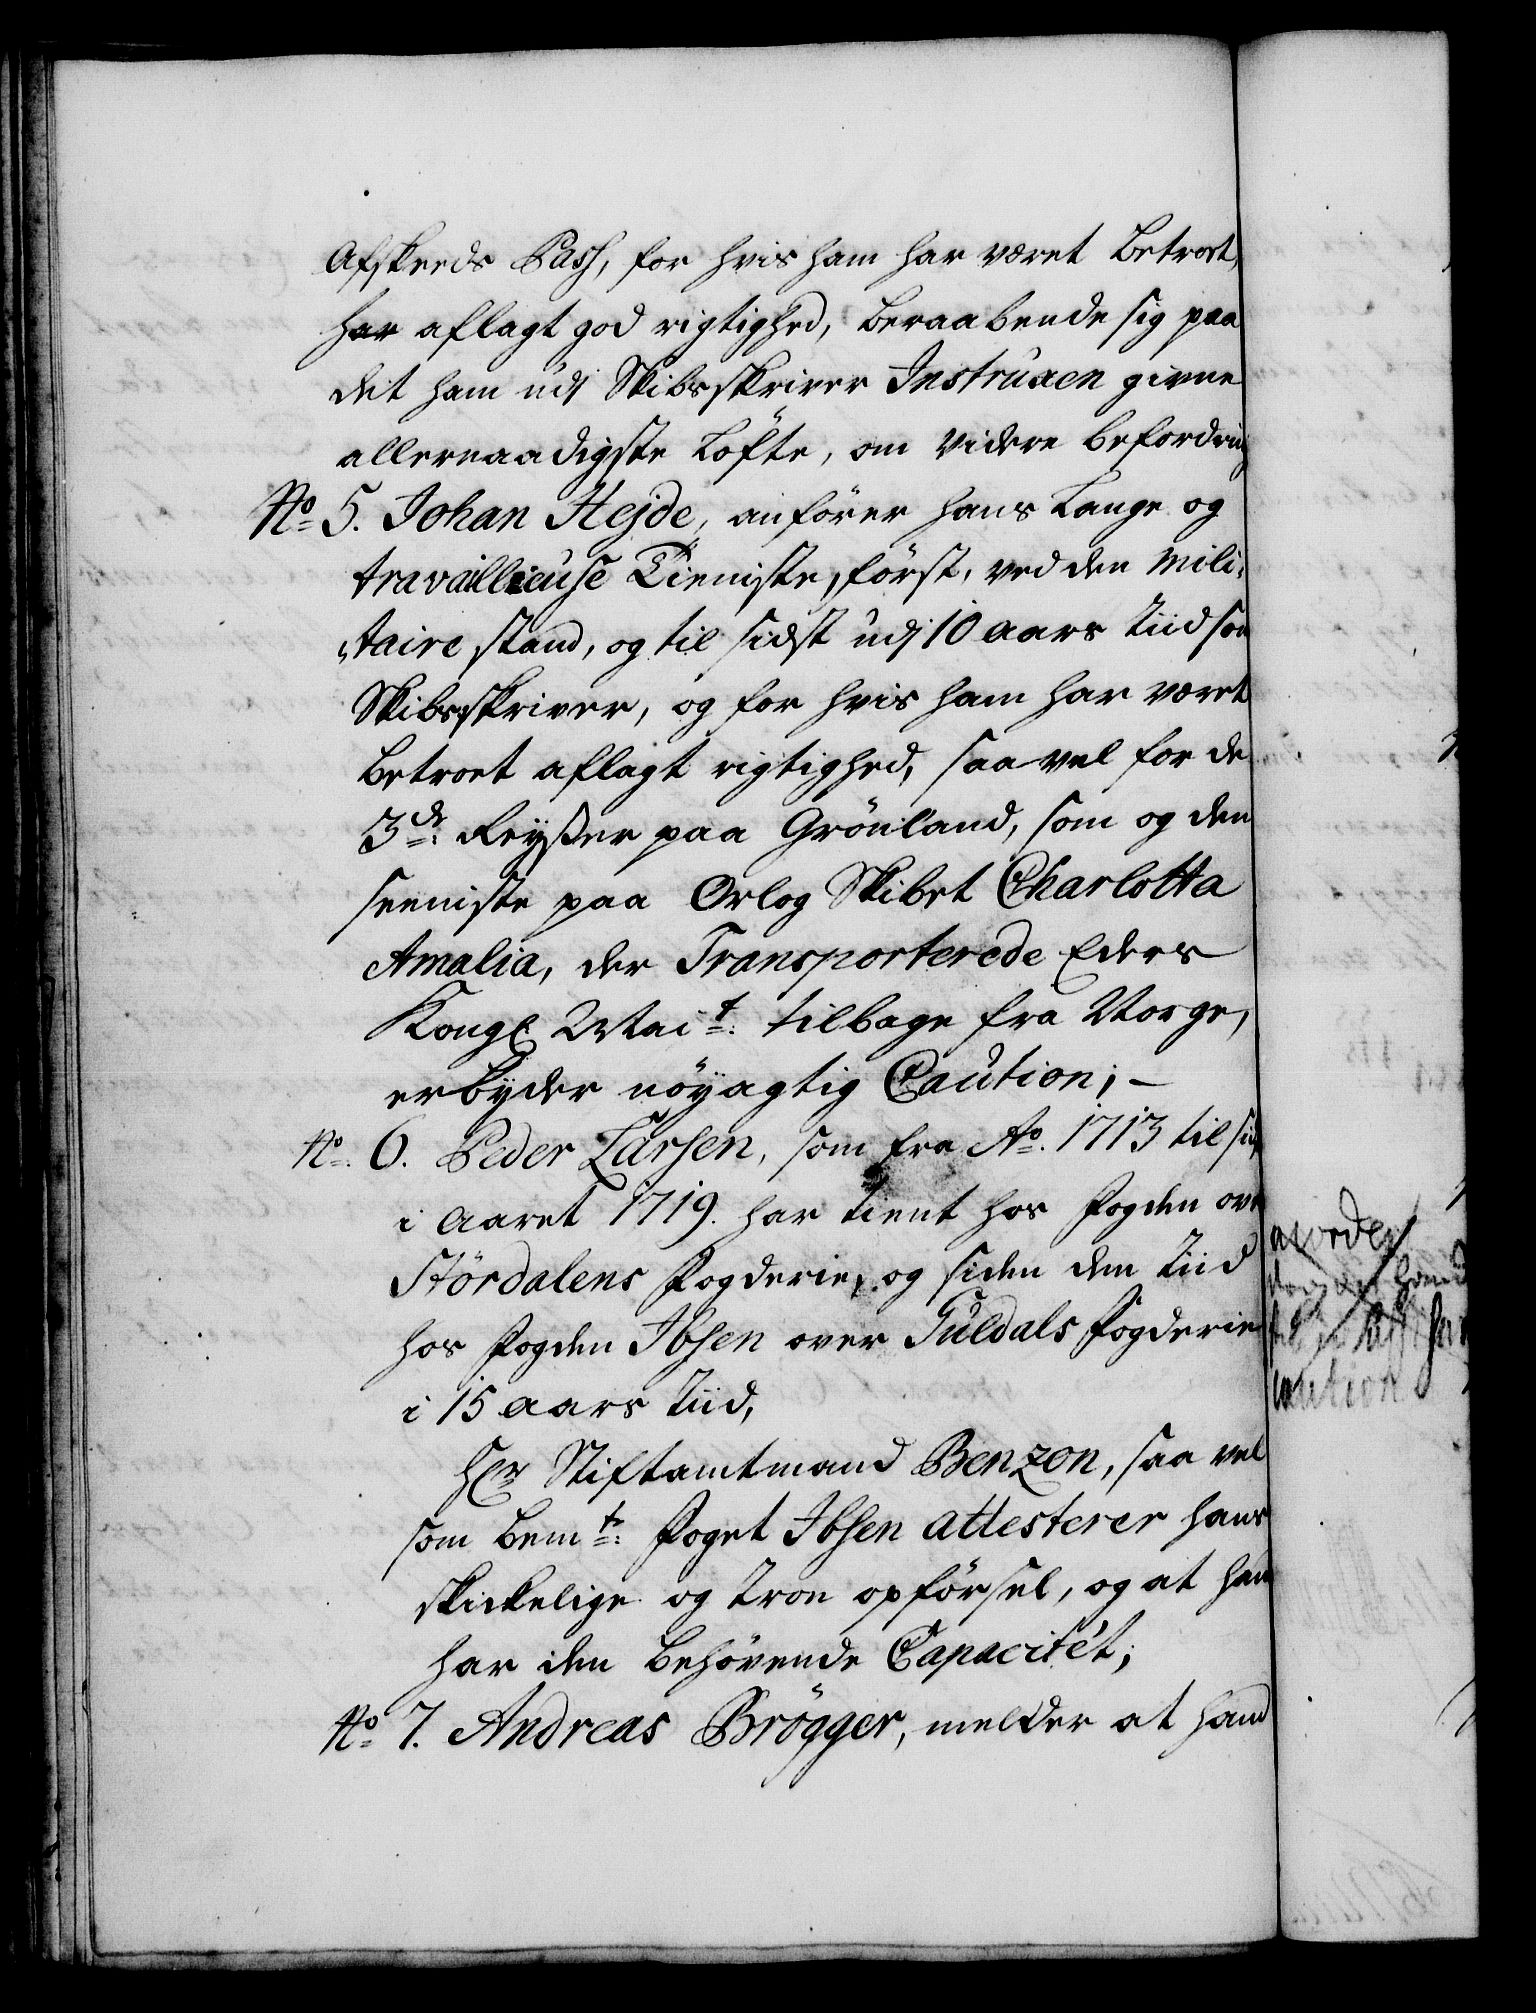 Afskeeds Pass, for hvis ham har været betroet,
har aflagt god rigtighed, beraabende sig paa
det ham udj Skibsskriver Instruxen givne
allernaadigste Löfte, om videre befordring
No 5. Johan Hejde, anförer hans lange og
travaillieuse Tieniste, först, ved den mili-
taire stand, og til sidst udj 10 aars tiid som
Skibsskriver, og for hvis ham har været
betroet aflagt rigtighed, saavel for de
3de Reyser paa Grönland, som og den
seeniste paa Orlog Skibet Charlotta
Amalia, der Transporterede Eders
Kongl Mait: tilbage fra Norge,
erbyder nöyagtig Caution; –
No 6. Peder Larsen, som fra Ao. 1713 til sidst
i Aaret 1719. har tient hos Fogden over
Stördalens Fogderie, og siden den tiid
hos Fogden Ibsen over Guldals Fogderie
i 15 aars tiid,
Hr Stiftamtmand Benzon, saa vel
som bemte: Foget Ibsen attesterer hans
skickelige og troe opförsel, og at hand
har den behövende Capacitét;
No 7. Andreas Brögger, melder at hand
caution